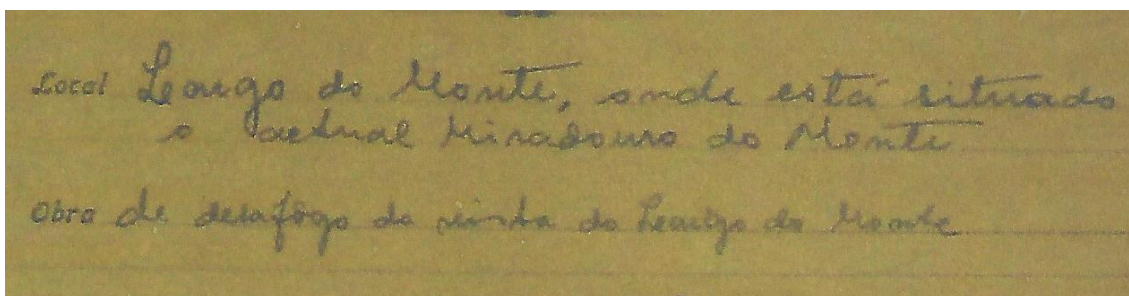 Local Largo do Monte, onde está situado
o actual Miradouro do Monte
Obra de desafôgo da vista do Largo do Monte